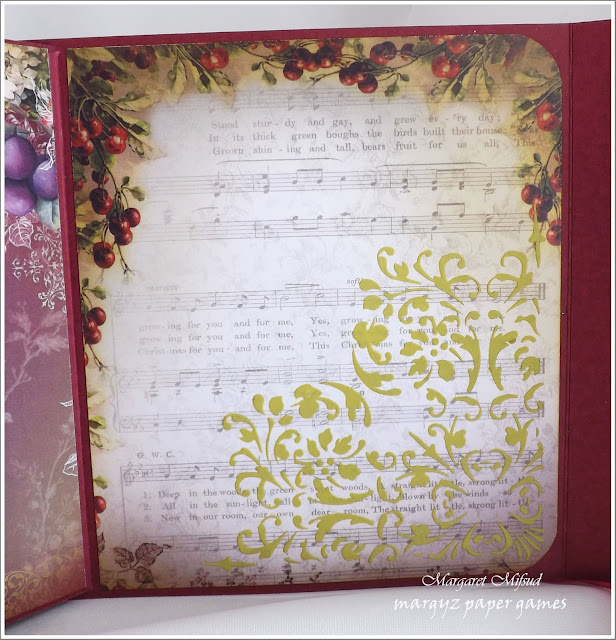 Stood stur - dy and gay, and grew ev - 'ry day;
In its thick green boughs the birds built their house
Grown shin - ing and tall, bears fruit for us all, This
grow - ing for you and for me, Yes, grow - ing for you and for me.
grow ing for you and for me, Yes, grow for you and for me,
Christ-mas for you and for me, This Chr for you and for me.
G. W. C.
1. Deep in the woods, the green woods, A straight lit - tle, strong lit -
2. All in the sun - light, all light, Blown by the winds so
3. Now in our room, our own dear room, The straight lit - tle, strong lit - tle
Margaret Mifsud
margyz paper games